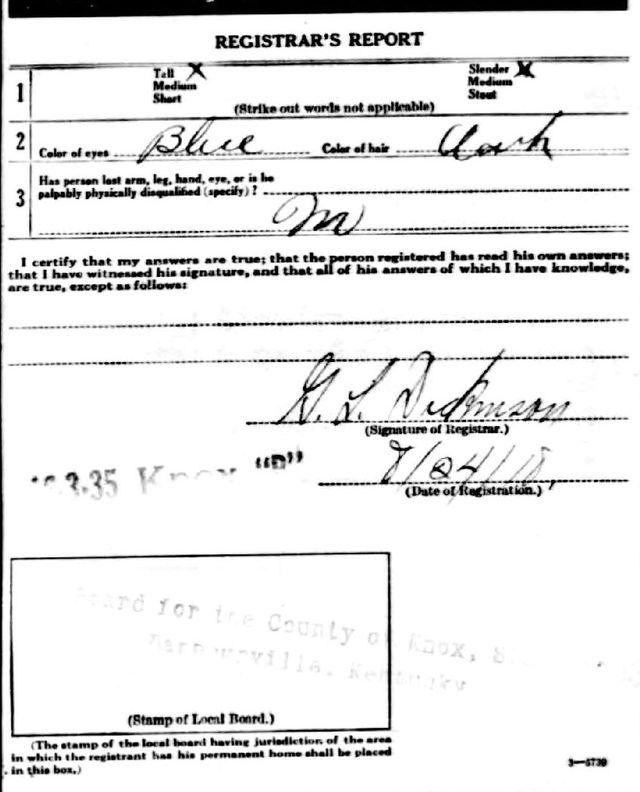 REGISTRAR'S REPORT
1 Tall X Slender X
Medium Medium
Short Stout
(Strike out words not applicable)
2 Color of eyes Blue Color of hair dark
3 Has person lost arm, leg, hand, eye, or is he
palpably physically disqualified (specify)?
I certify that my answers are true; that the person registered has read his own answers;
that I have witnessed his signature, and that all of his answers of which I have knowledge,
are true, except as follows:
G. L. Dickinson
(Signature of Registrar.)
3.35 Knox "D" 8/24/18,
(Date of Registration.)
Board for the County of Knox,
Kentucky
(Stamp of Local Board.)
(The stamp of the local board having jurisdiction of the area
in which the registrant has his permanent home shall be placed
in this box.)
3—5739